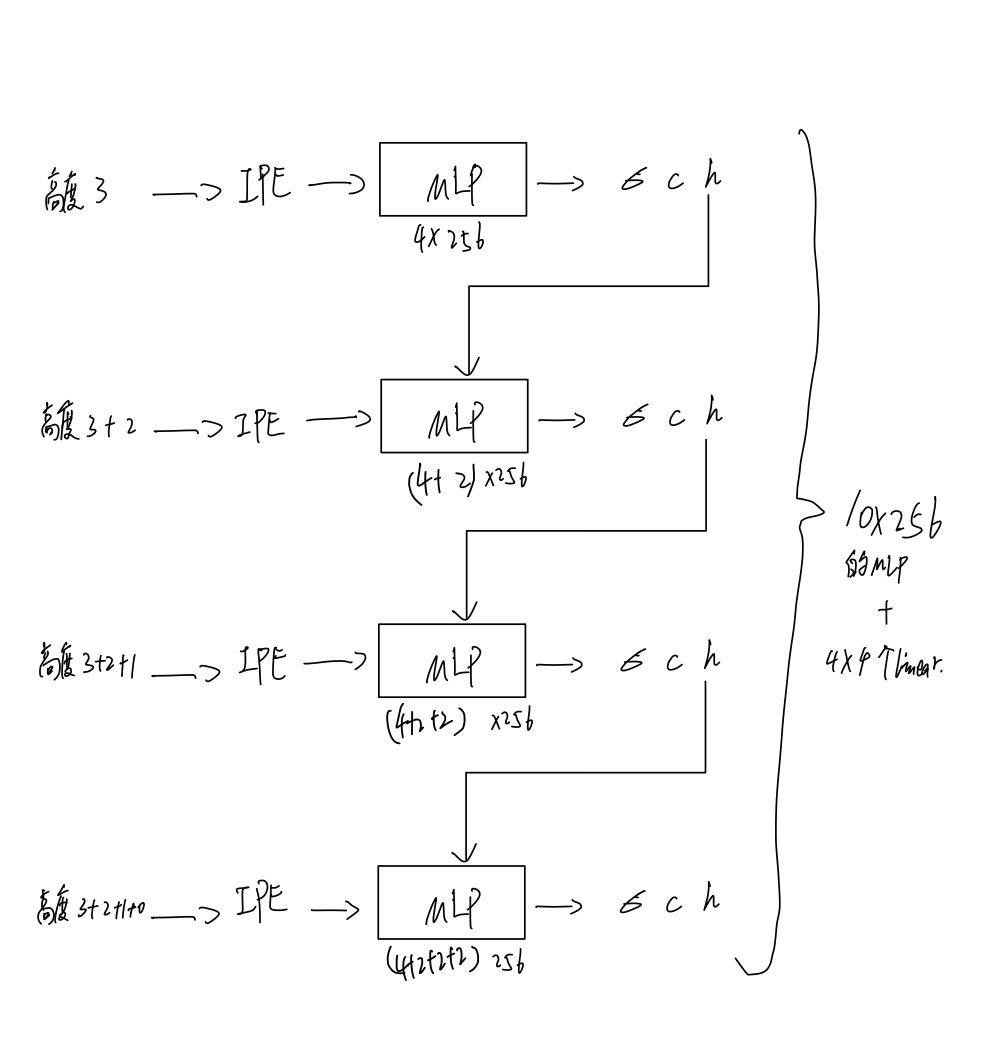 高度 3 IPE MLP σ c h
4×256
高度 3+2 IPE MLP σ c h
(4+2)×256
高度 3+2+1 IPE MLP σ c h
(4+2+2) ×256
高度 3+2+1+0 IPE MLP σ c h
(4+2+2+2) 256
10×256
的MLP
+
4×4个linear.